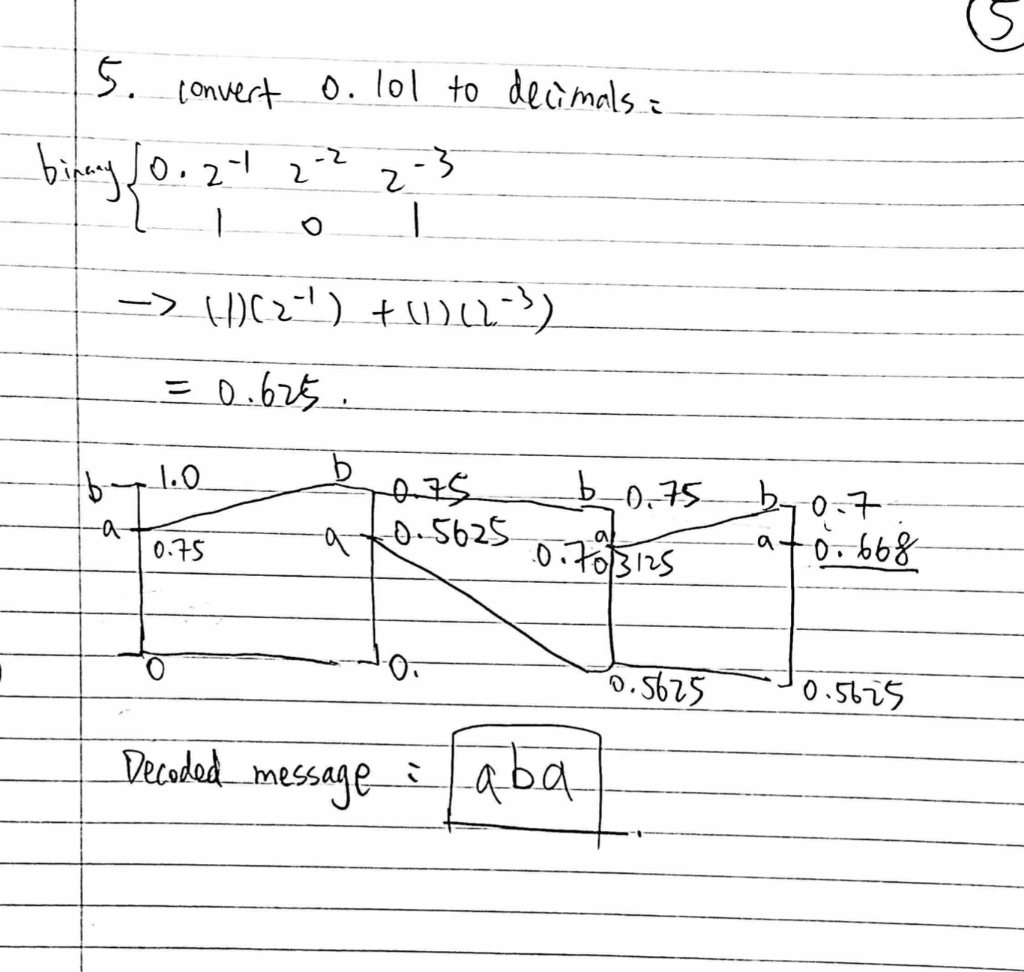 5
5. convert 0.101 to decimals :
binary { 0. 2^-1 2^-2 2^-3
1 0 1
-> (1)(2^-1) + (1)(2^-3)
= 0.625.
b 1.0 b 0.75 b 0.75 b 0.7
a 0.75 a 0.5625 a 0.703125 a 0.668
0 0. 0.5625 0.5625
Decoded message : aba